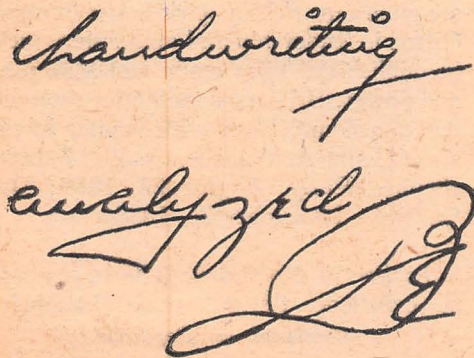 handwriting
analyzed